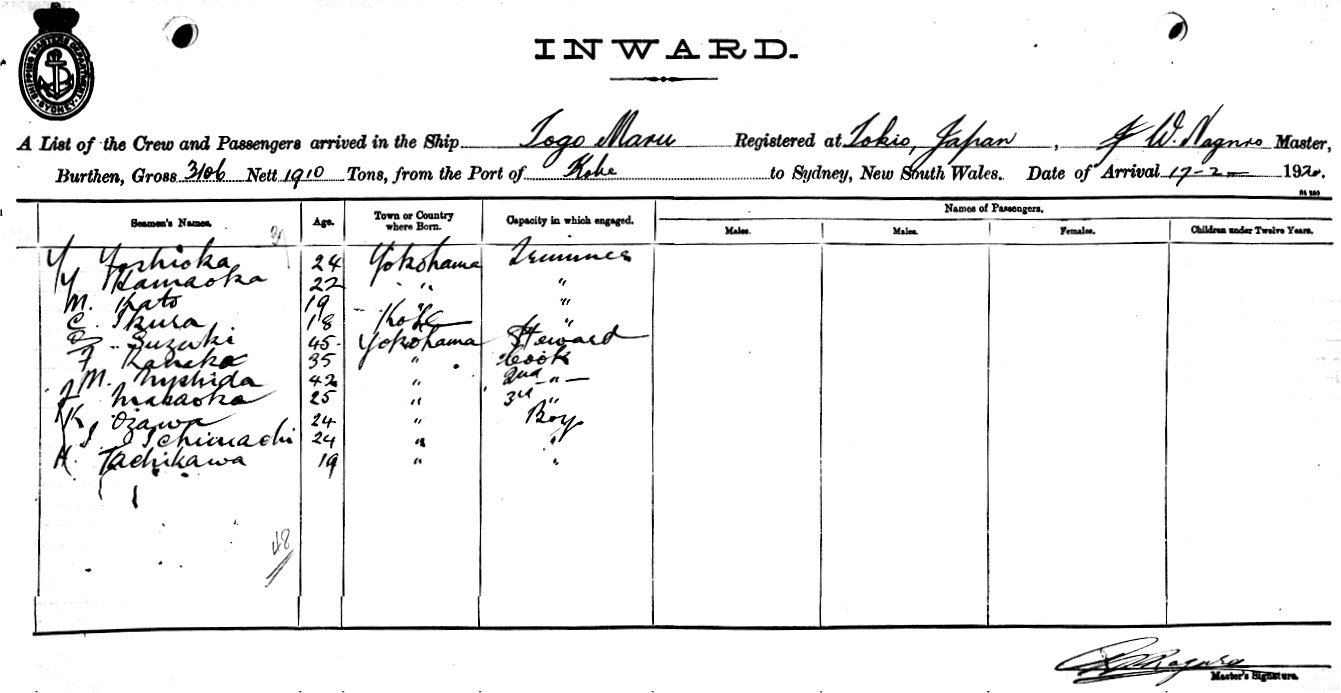 SHIPPING MASTER'S DEPARTMENT
SYDNEY
INWARD.
A List of the Crew and Passengers arrived in the Ship Togo Maru Registered at Tokio, Japan, Master,
Burthen, Gross 3106 Nett 1910 Tons, from the Port of Kobe to Sydney, New South Wales. Date of Arrival 17-2- 1920.
Seamen's Names. Age. Town or Country where Born. Capacity in which engaged. Names of Passengers.
Males. Males. Females. Children under Twelve Years.
Y Yoshioka 24 Yokohama Trimmer
Y Hamaoka 22 " " "
M. Kato 19 " "
C. Ikura 18 Kobe "
Suzuki 45 Yokohama Steward
F Kaneko 35 " Cook
M. Nyshida 42 " 2nd - " -
F Masaoka 25 " 3rd "
K Ozawa 24 " Boy
Ichimachi 24 " "
K. Tachikawa 19 " "
48
Master's Signature.